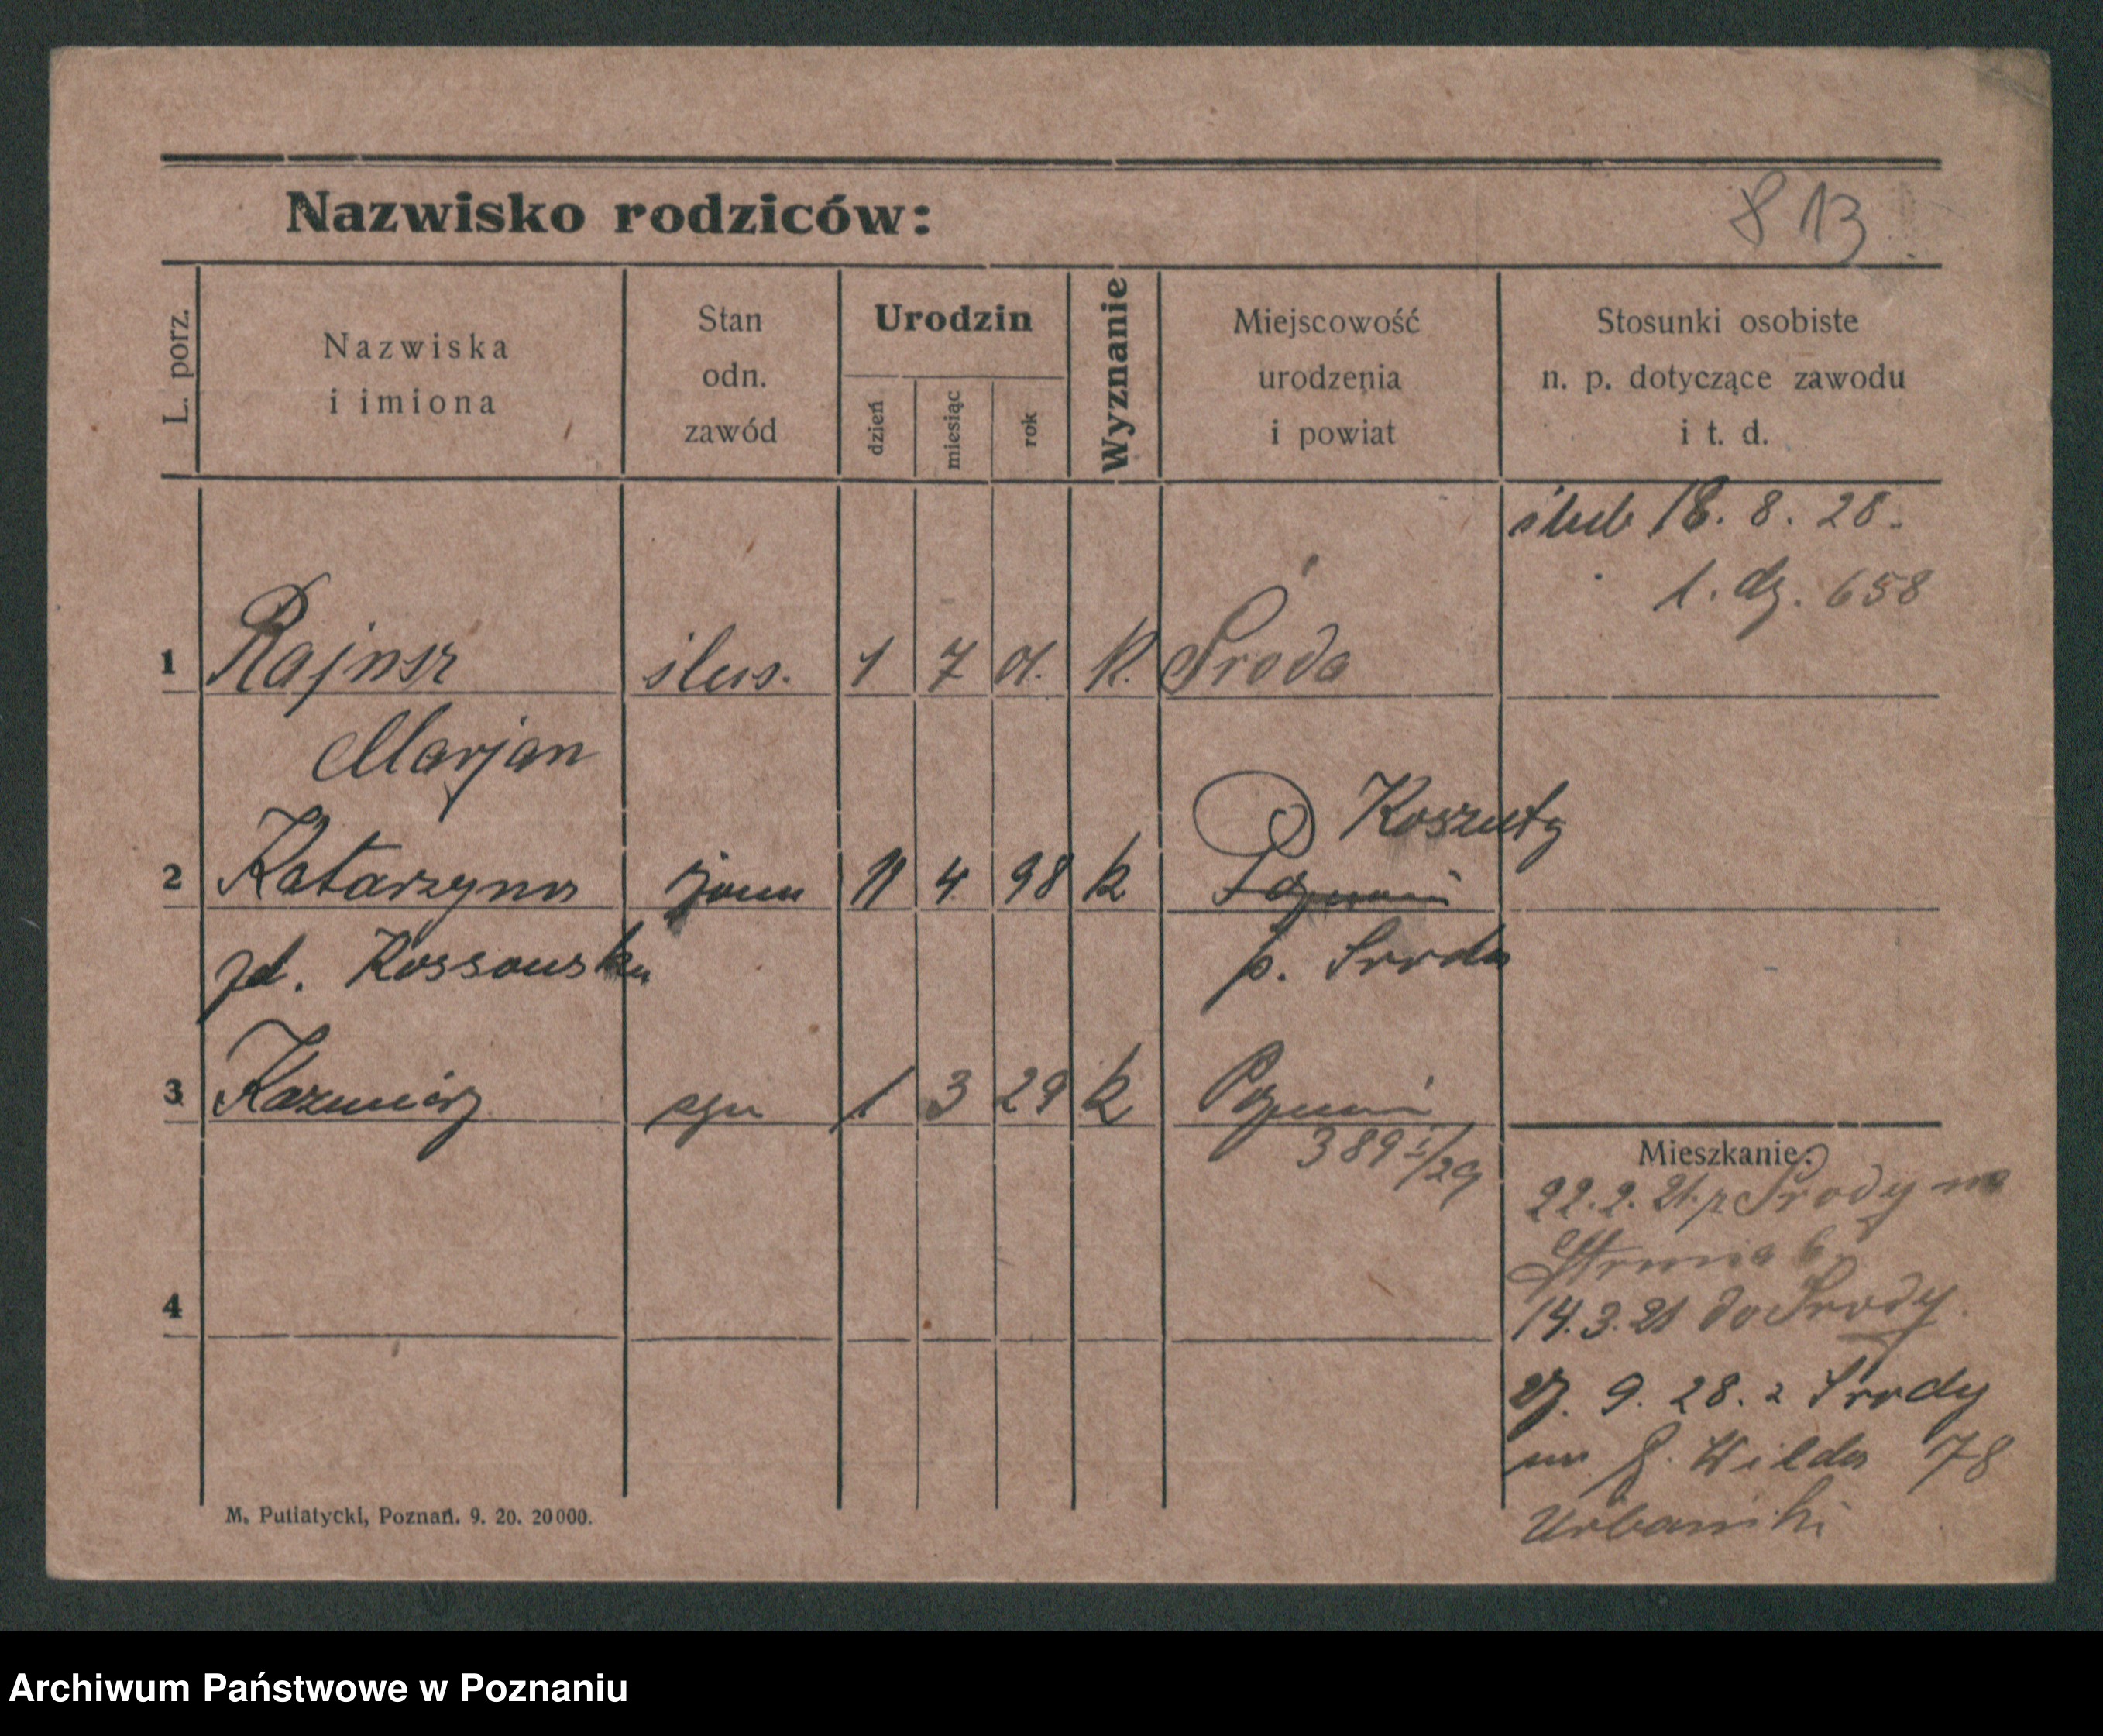 Nazwisko rodziców:
813
L. porz.
Nazwiska
i imiona
Stan
odn.
zawód
Urodzin
dzień
miesiąc
rok
Wyznanie
Miejscowość
urodzenia
i powiat
Stosunki osobiste
n. p. dotyczące zawodu
i t. d.
ślub 18. 8. 28.
l. dz. 658
1 Rajnsz ślus. 1 7 01. k. Środa
Marjan
Koszuty
2 Katarzyna żona 11 4 98 k Poznań
zd. Kossowska p. Środa
3 Kazimierz syn 1 3 29 k Poznań
389 I/29
Mieszkanie:
22. 2. 21. z Środy na
6
4
14. 3. 21 do Środy
27. 9. 28. z Środy
na G. Wilda 78
Urbański
M. Putiatycki, Poznań. 9. 20. 20000.
Archiwum Państwowe w Poznaniu